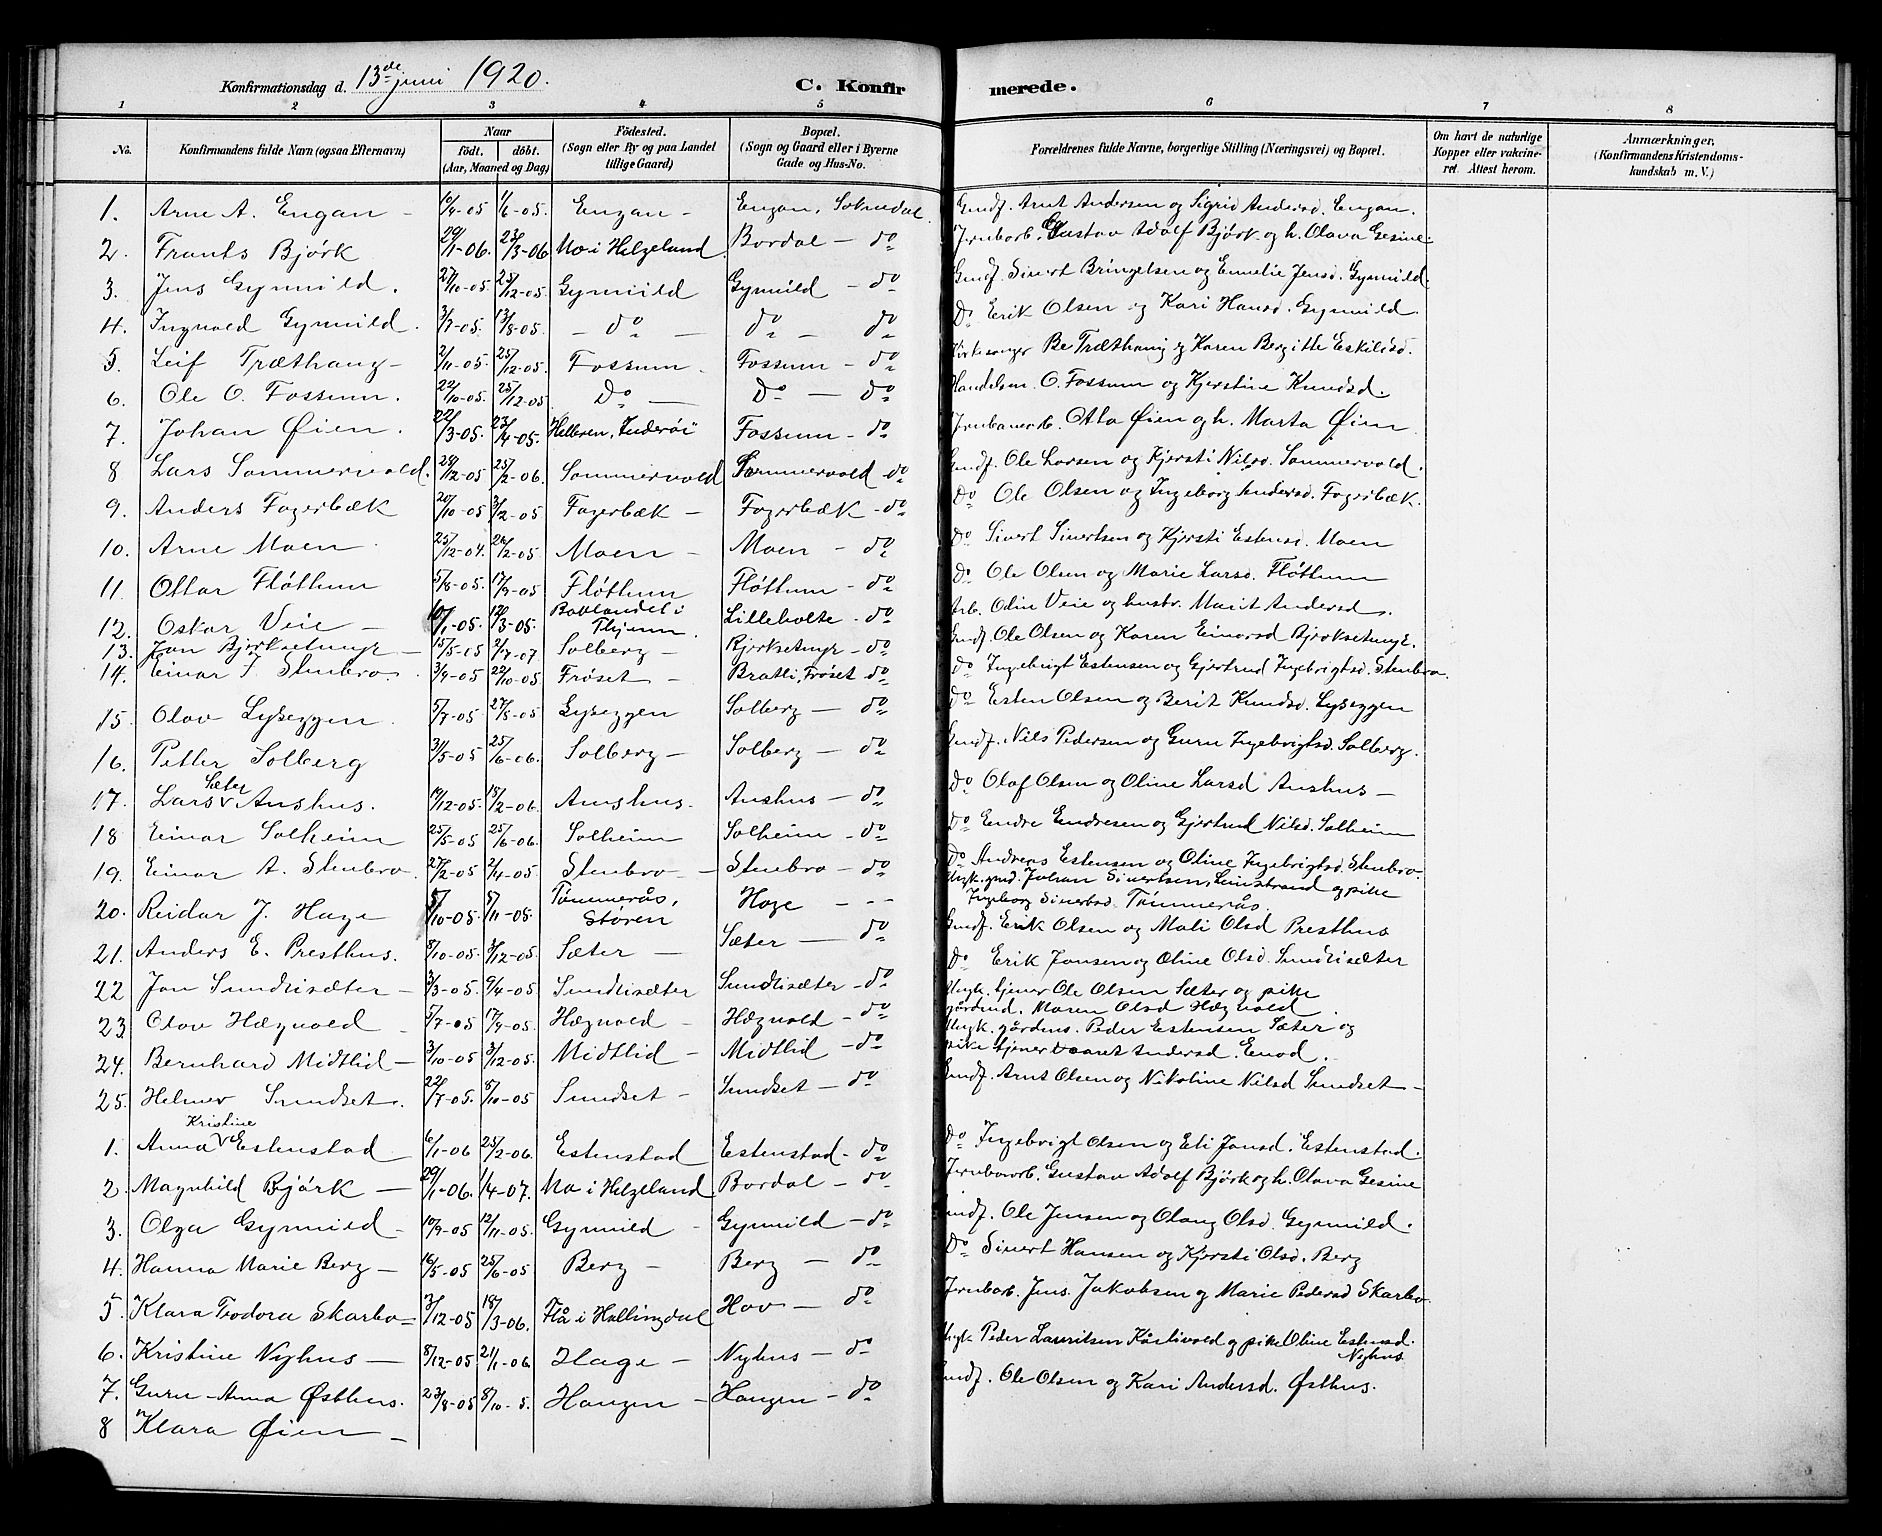 Konfirmationsdag d. 13de juni 1920. C. Konfirmerede.
1 2 3 4 5 6 7 8
No. Konfirmandens fulde Navn (ogsaa Efternavn) Naar födt. döbt. (Aar, Maaned og Dag) Födested. (Sogn eller By og paa Landet tillige Gaard) Bopæl. (Sogn og Gaard eller i Byerne Gade og Hus-No. Forældrenes fulde Navne, borgerlige Stilling (Næringsvei) og Bopæl. Om havt de naturlige Kopper eller vakcineret. Attest herom. Anmærkninger, (Konfirmandens Kristendomskundskab m. V.)
1. Arne A. Engan - 10/4-05 1/6-05. Engan - Engan, Soknedal. Gmdf. Arnt Andersen og Sigrid Andersd. Engan.
2. Frants Bjørk 29/1-06. 23/3-06 Mo i Helgeland Bordal - do Jernbarb. Gustav Adolf Bjørk og h. Olava Gesine
3. Jens Gynnild. 27/10-05. 25/12-05. Gynnild Gynnild - do Gmdf. Sivert Bringelsen og Ennelie Jensd. Gynnild.
4. Ingvald Gynnild. 3/7-05. 13/8-05. - do - do - do Do Erik Olsen og Kari Hansd. Gynnild.
5. Leif Træthaug - 2/11-05. 25/12-05. Fossum. Fossum - do Kirkesanger Be Træthaug og Karen Bergitte Eskilsd.
6. Ole O. Fossum. 22/10-05. 25/12-05 Do - Do - Do Handelsm. O. Fossum og Kjerstine Knudsd.
7. Johan Øien. 22/3-05. 23/4-05. Helleren, Inderøi Fossum - do Jernbanearb. Otto Øien og h. Marta Øien
8 Lars Sommervold. 28/12-05 25/2-06. Sommervold Sommervold - do Gmdf. Ole Larsen og Kjersti Nilsd. Sommervold.
9. Anders Fagerbæk 20/10-05 3/12-05 Fagerbæk - Fagerbæk - do Do Ole Olsen og Ingeborg Andersd. Fagerbæk.
10. Arne Moen. 25/12-04. 26/2-05 Moen - Moen - do Do Sivert Sivertsen og Kjersti Estensd. Moen
11. Ottar Fløttum 5/8-05. 17/9-05 Fløttum Fløttum - do Do Ole Olsen og Marie Larsd. Fløttum
12. Oskar Veie - 10/1-05. 12/3-05. Lillebolte - do Arb. Odin Veie og hustr. Marit Andersd.
13. Jon Bjørksetmyr - 15/5-05 2/7-07 Solberg - Bjørksetmyr - do Gmdf. Ole Olsen og Karen Einarsd Bjørksetmyr.
14. Einar I. Stenbro. 3/9-05 22/10-05 Frøset - Bratli, Frøset do Do Ingebrigt Estensen og Gjertrud Ingebrigtsd. Stenbro.
15. Olav Lyseggen. 5/7-05 27/8-05 Lyseggen Solberg - do Do Esten Olsen og Berit Knudsd. Lyseggen
16. Petter Solberg 31/5-05 25/6-06. Solberg - Solberg - do Gmdf. Nils Pedersen og Guru Ingebrigtsd. Solberg.
17. Lars Sæter Aushus. 19/12-05. 18/2-06. Aushus. Aushus - do Do Olaf Olsen og Oline Larsd Aushus -
18 Einar Solheim 25/5-05 25/6-06. Solheim Solheim - do Do Endre Endresen og Gjertrud Nilsd. Solheim
19. Einar A. Stenbro. 27/2-05 2/4-05 Stenbro - Stenbro - do Do Andreas Estensen og Oline Ingebrigtsd Stenbro.
20. Reidar J. Hage 5/10-05. 5/11-05. Tømmerås, Støren Hage - - - Ungk. gmd. Johan Sivertsen, Leinstrand og pike Ingeborg Sivertsd. Tømmerås.
21. Anders E. Presthus. 8/10-05. 3/12-05. Sæter - Sæter - do Gmdf. Erik Olsen og Mali Olsd Presthus
22 Jon Sundlisæter - 3/3-05. 9/4-05 Sundlisæter Sundlisæter - do Do Erik Jonsen og Oline Olsd. Sundlisæter
23. Olav Hægvold 5/7-05 17/9-05. Hægvold - Hægvold - do Ungk. tjener Ole Olsen Sæter og pike gårdmd. Maren Olsd Hægvold.
24. Bernhard Midtlid - 3/10-05 3/12-05. Midtlid - Midtlid - do Ungk. gårdens. Peder Estensen Sæter og pike tjener Andersd.
25. Helmer Sundset. 22/7-05. 8/10-05 Sundset - Sundset - do Gmdf. Arnt Olsen og Nikoline Nilsd Sundset -
1. Anna Kristine Estenstad 6/1-06 25/2-06. Estenstad Estenstad - do Do Ingebrigt Olsen og Eli Jonsd. Estenstad.
2. Magnhild Bjørk - 29/1-06. 1/4-07. Mo i Helgeland Bordal - do Jernbanarb. Gustav Adolf Bjørk og h. Olava Gesine
3. Olga Gynnild - 10/9-05 12/11-05. Gynnild - Gynnild - do Gmdf. Ole Jensen og Olaug Olsd. Gynnild.
4. Hanna Marie Berg - 16/5-05 25/6-05 Berg - Berg - do Do Sivert Hansen og Kjersti Olsd. Berg
5. Klara Teodora Skarbo - 3/12-05 18/3-06. Flå i Hallingdal Hov - do Jernbarb. Jens Jakobsen og Marie Pedersd Skarbo.
6. Kristine Nyhus - 8/12-05 21/1-06. Hage - Nyhus - do Ungk Peder Lauritsen Kårlivold og pike Oline Estensd. Nyhus
7. Guru - Anna Østhus. 23/8-05 8/10-5. Haugen - Haugen - do Gmdf. Ole Olsen og Kari Andersd. Østhus.
8 Klara Øien -